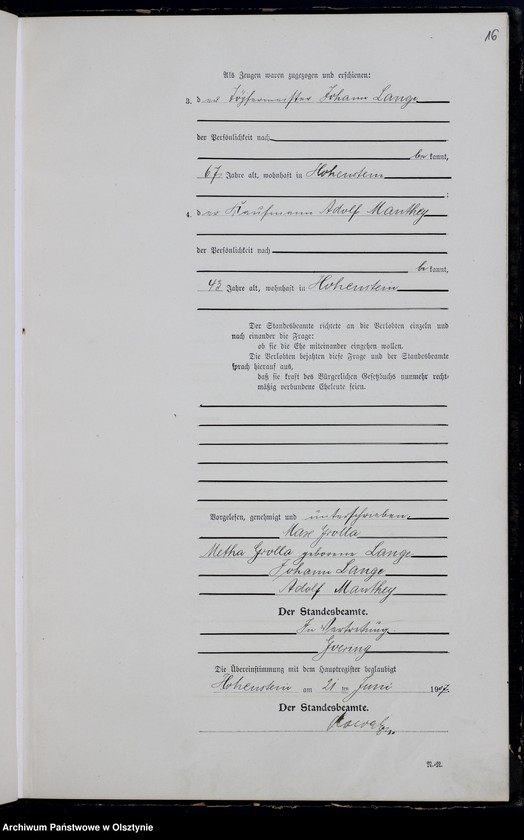 16
Als Zeugen waren zugezogen und erschienen:
3. der Töpfermeister Johann Lange
der Persönlichkeit nach
be kannt,
67 Jahre alt, wohnhaft in Hohenstein
;
4. der Kaufmann Adolf Manthey
der Persönlichkeit nach
be kannt,
43 Jahre alt, wohnhaft in Hohenstein
Der Standesbeamte richtete an die Verlobten einzeln und
nach einander die Frage:
ob sie die Ehe miteinander eingehen wollen.
Die Verlobten bejahten diese Frage und der Standesbeamte
sprach hierauf aus,
daß sie kraft des Bürgerlichen Gesetzbuchs nunmehr recht-
mäßig verbundene Eheleute seien.
Vorgelesen, genehmigt und unterschrieben.
Max Grolla
Metha Grolla geborene Lange
Johann Lange
Adolf Manthey
Der Standesbeamte.
In Vertretung
Goering
Die Übereinstimmung mit dem Hauptregister beglaubigt
Hohenstein am 21 ten Juni 1907.
Der Standesbeamte.
N.-R.
Archiwum Państwowe w Olsztynie